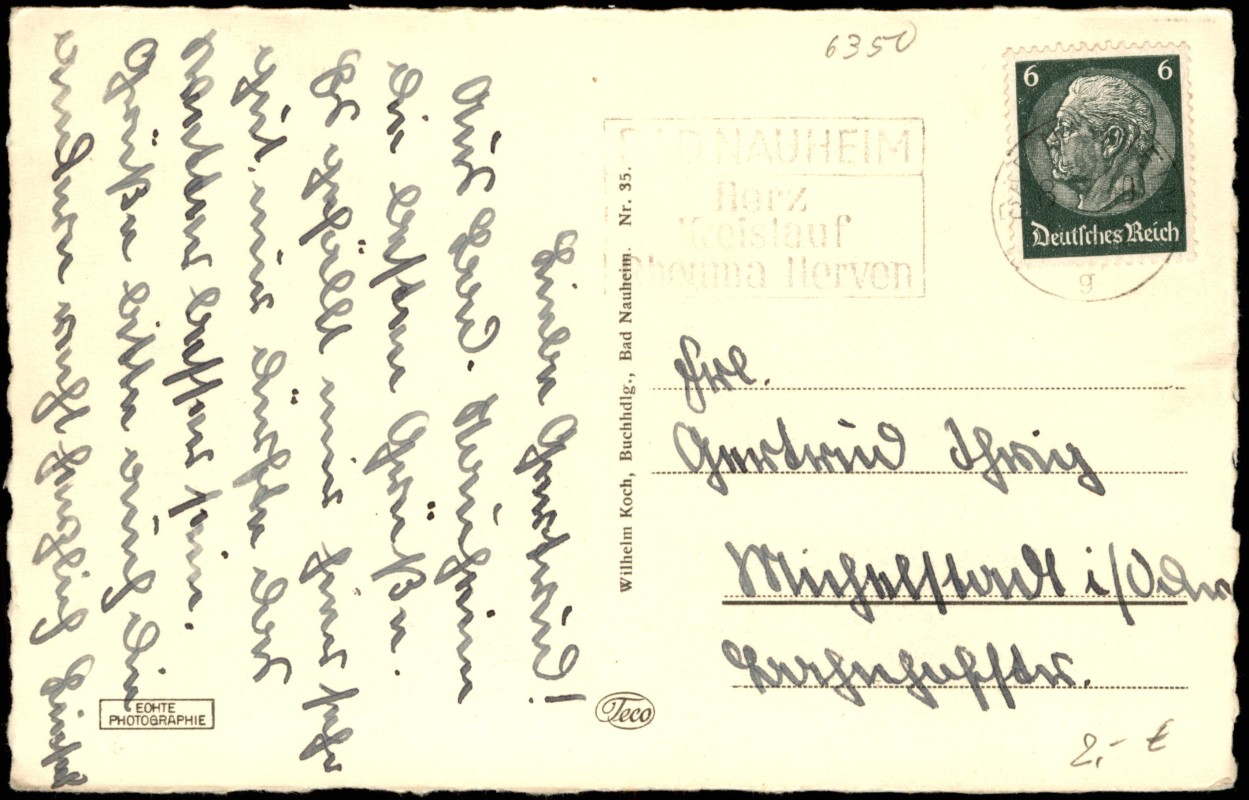 6350
6 6
Deutsches Reich
BAD NAUHEIM
Herz
Kreislauf
Rheuma Nerven
g
Liebe Gertrud!
Aus Bad-Nauheim
die besten Grüße.
Es gefällt mir hier sehr
gut, nur dürfte das
Wetter besser sein.
Grüße bitte auch die
anderen recht herzlich
Wilhelm Koch, Buchhdlg., Bad Nauheim. Nr. 35.
Frl.
Gertrud Ihrig
Michelstadt i/Oden
Bahnhofstr.
ECHTE
PHOTOGRAPHIE
Teco
2,- €